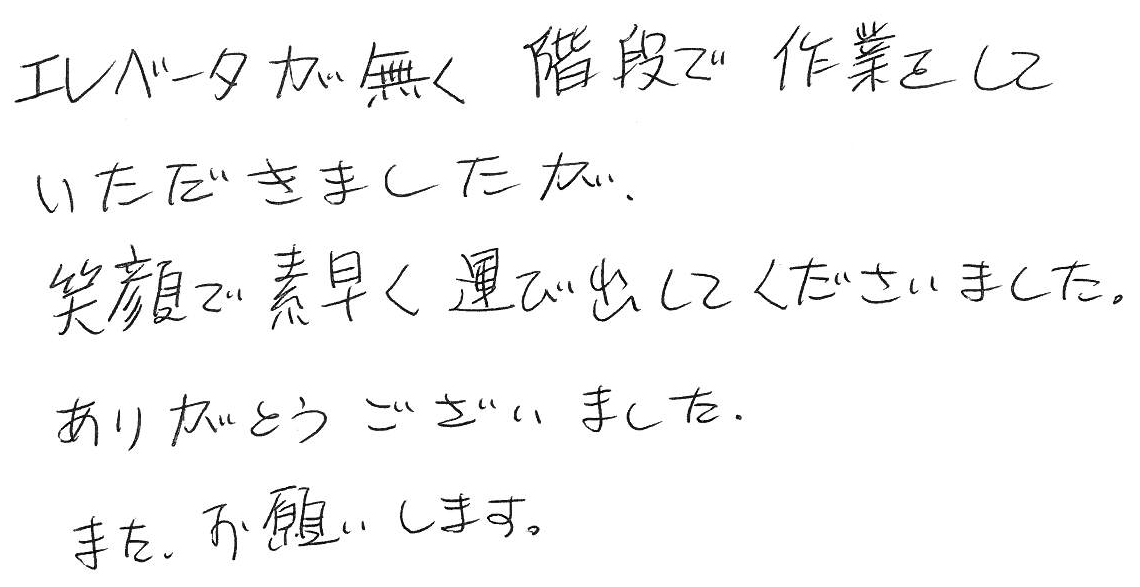 エレベータが無く 階段で 作業をして
いただきましたが、
笑顔で素早く運び出してくださいました。
ありがとうございました.
また、お願いします。